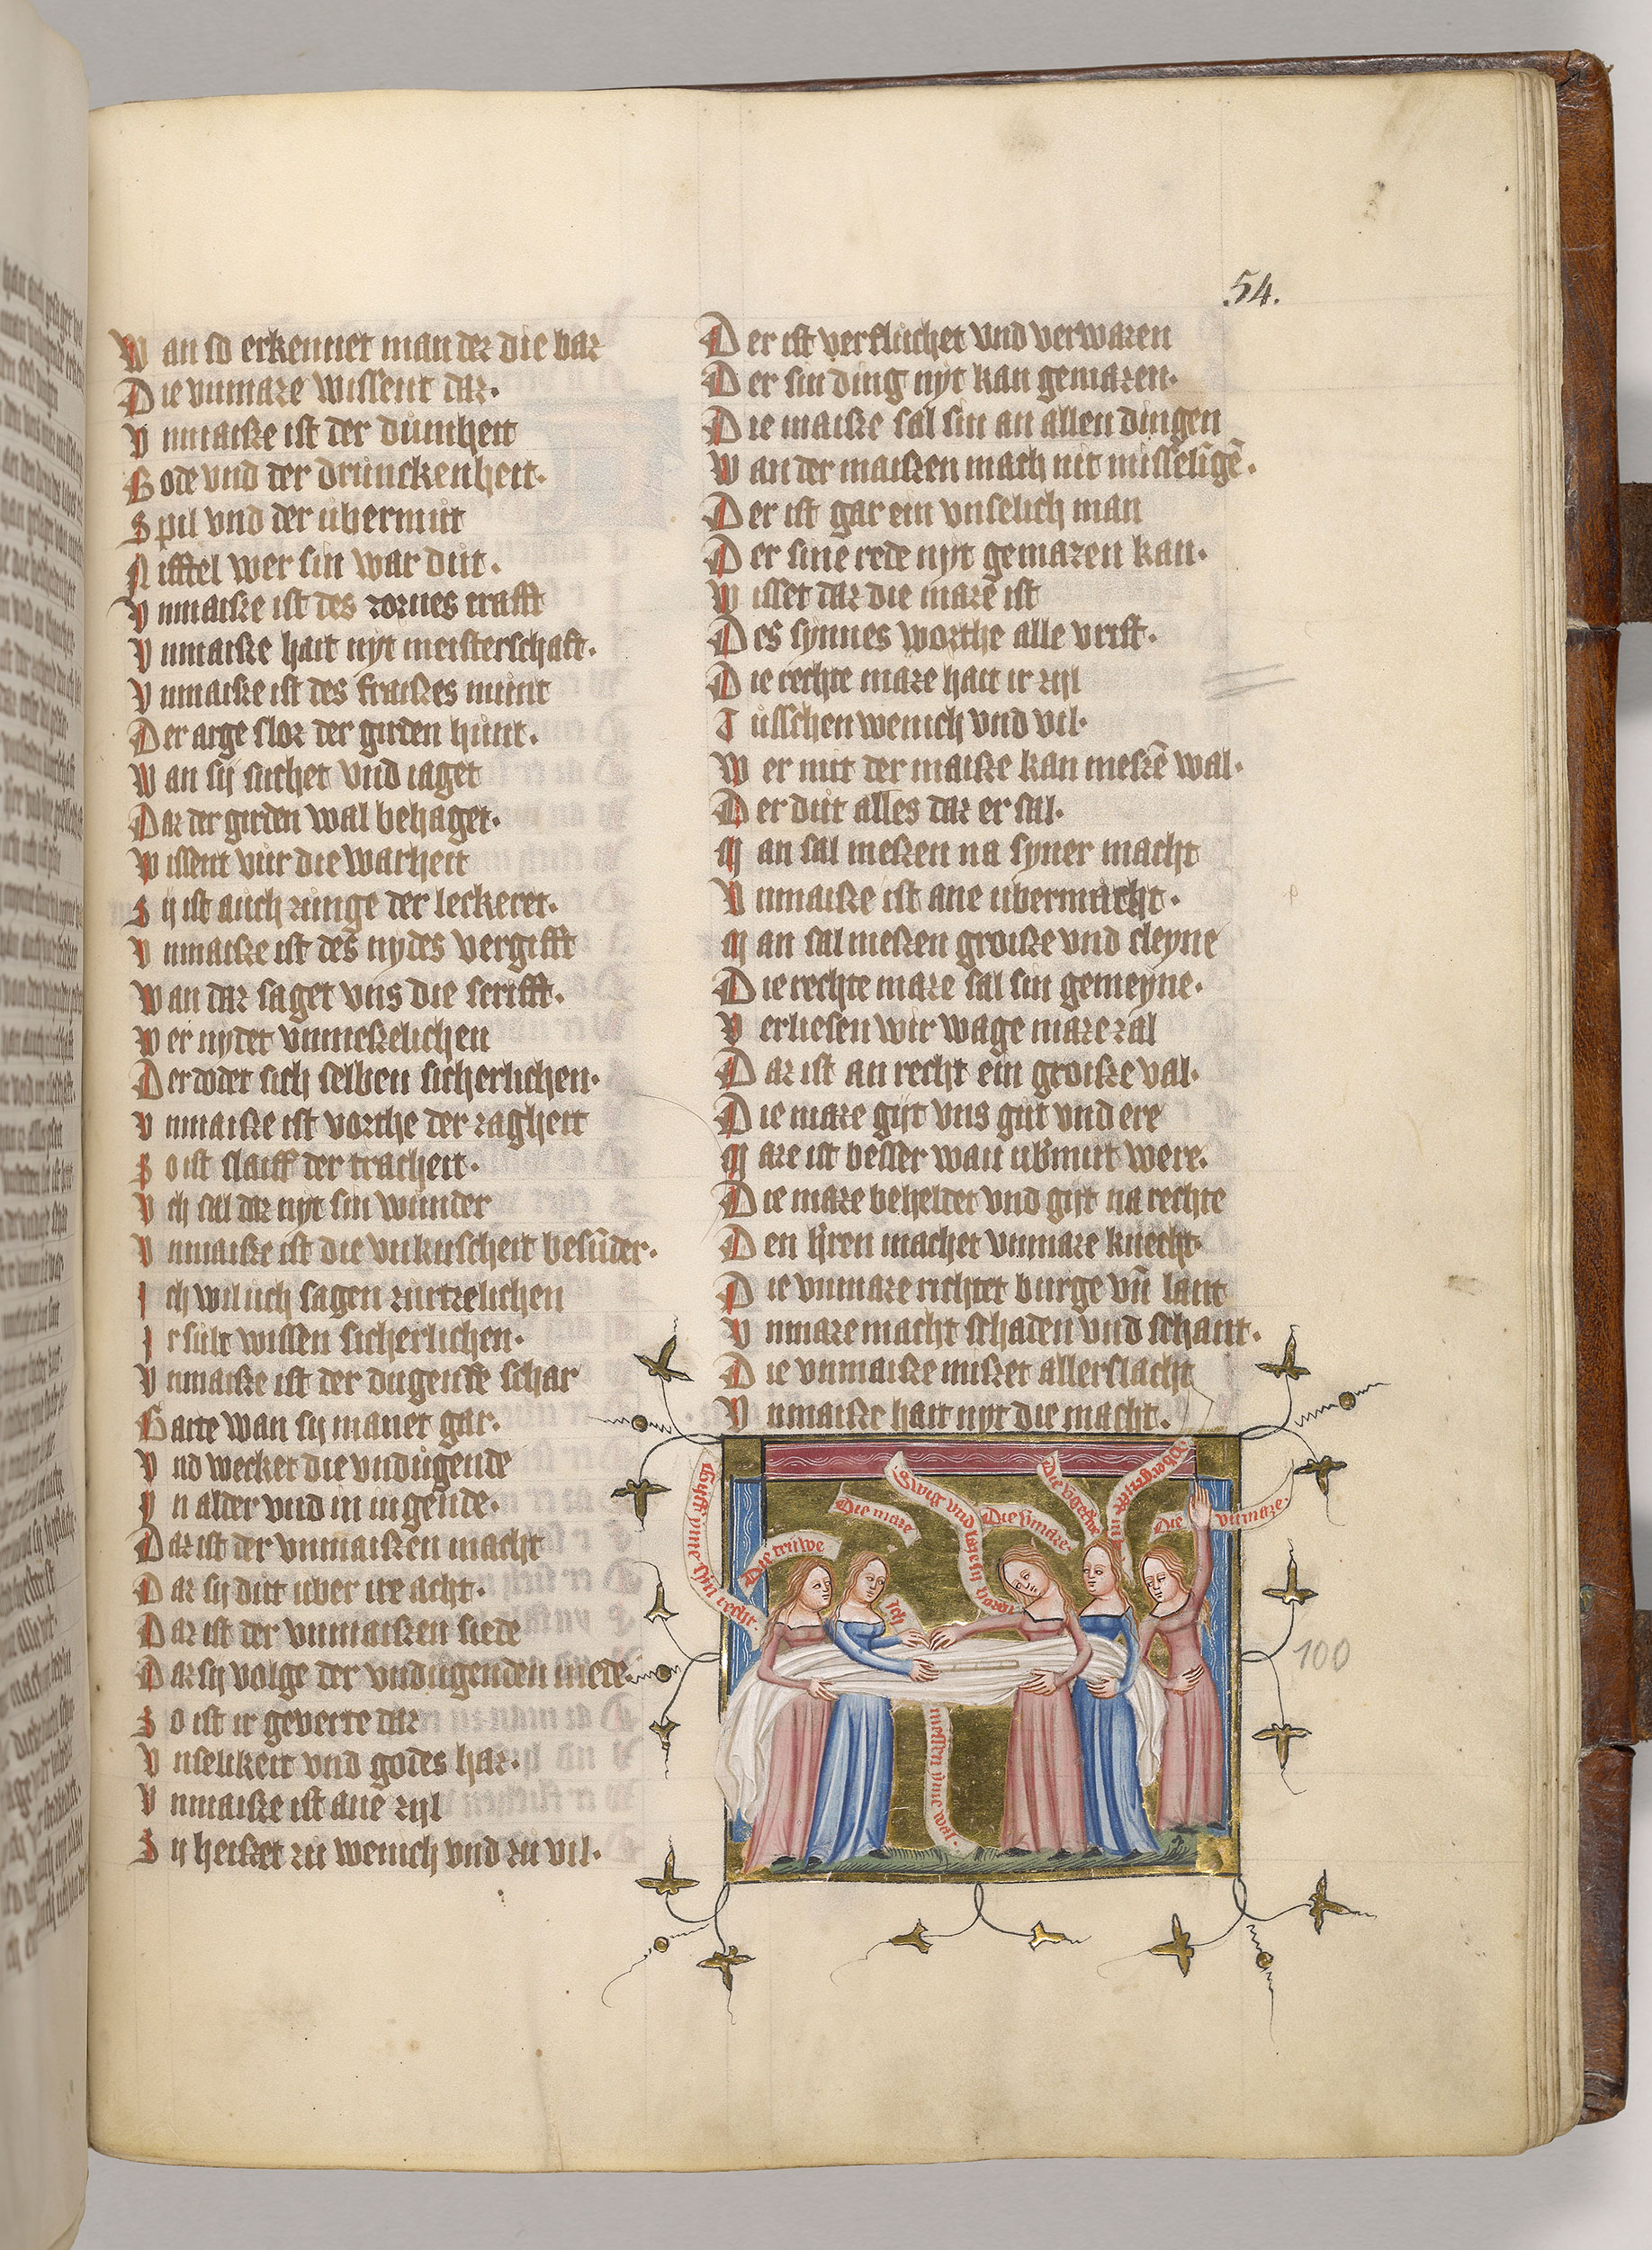 54.
Wan so erkennet man der die baz
Die vnmaze wissent daz.
Vnmaisze ist der dumheit
Bode vnd der drunckenheit.
Spil vnd der ubermut
Nifftel wer sin war dut.
Vnmaisze ist des zornes crafft
Vnmaisze hait nyt meisterschaft.
Vnmaisze ist des fraiszes munt
Der arge sloz der girden hunt.
Wan sij suchet vnd iaget
Daz der girden wal behaget.
Wissent vur die warheit
Sij ist auch zunge der leckeret.
Vnmaisze ist des nydes vergifft
Wan daz saget vns die scrifft.
Wer nydet vnmeszelichen
Der dodet sich selben sicherlichen.
Vnmaisze ist vorthe der zagheit
So ist slaiff der tracheit.
Vch sal daz nyt sin wunder
Vnmaisze ist die vnkuscheit besūder.
Ich wil uch sagen nutzelichen
Ir sult wissen sicherlichen.
Vnmaisze ist der dugende schar
Garte wan sij manet gar.
Vnd wecket die vndugende
In alder vnd in iugende.
Daz ist der vnmaiszen macht
Daz sij dut uber ire acht.
Daz ist der vnmaiszen siede
Daz sij volge der vndugenden miede.
So ist ir geverte daz
Vnselikeit vnd godes haz.
Vnmaisze ist ane zijl
Sij heiszet zu wenich vnd zu vil.
Der ist verfluchet vnd verwazen
Der sin ding nyt kan gemazen.
Die maisze sal sin an allen dingen
Wan der maiszen mach nit misselīgē.
Der ist gar ein vnselich man
Der sine rede nyt gemazen kan.
Wisset daz die maze ist
Des synnes worthe alle vrist.
Die rechte maze hait ir zijl
Tusschen wenich vnd vil.
Wer mit der maisze kan meszē wal.
Der dut alles daz er sal.
Man sal meszen na syner macht
Vnmaisze ist ane ubermacht.
Man sal meszen groisze vnd cleyne
Die rechte maze sal sin gemeyne.
Verliesen wir wage maze zal
Daz ist an recht ein groisze val.
Die maze gijt vns gut vnd ere
Maze ist besser wan ub'mut were.
Die maze beheldet vnd gijt na rechte
Den h'ren machet vnmaze knecht.
Die vnmaze richtet burge vn̄ lant
Vnmaze macht schaden vnd schant.
Die vnmaisze miszet allerslacht
Vnmaisze hait nyt die macht.
Die truwe
Die maze
Swig vnd
Die vnmaze.
ich
messen
wal.
100